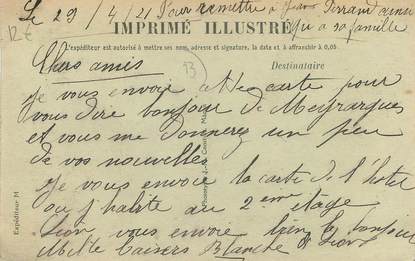 Le 29/4/21 Pour remettre à Jean
qu a sa famille
12€
IMPRIMÉ ILLUSTRÉ
L'expéditeur est autorisé à mettre ses nom, adresse et signature, la date et à affranchir à 0,05
Destinataire
13
Chers amis
Je vous envoie cette carte pour
vous dire bonjour de Meyrargues
et vous me donnerez un peu
de vos nouvelles
Je vous envoie la carte de l'hotel
ou j'habite au 2ème étage
Léon vous envoie bien le bonjour
Mille baisers Blanche et Léon
Expéditeur M